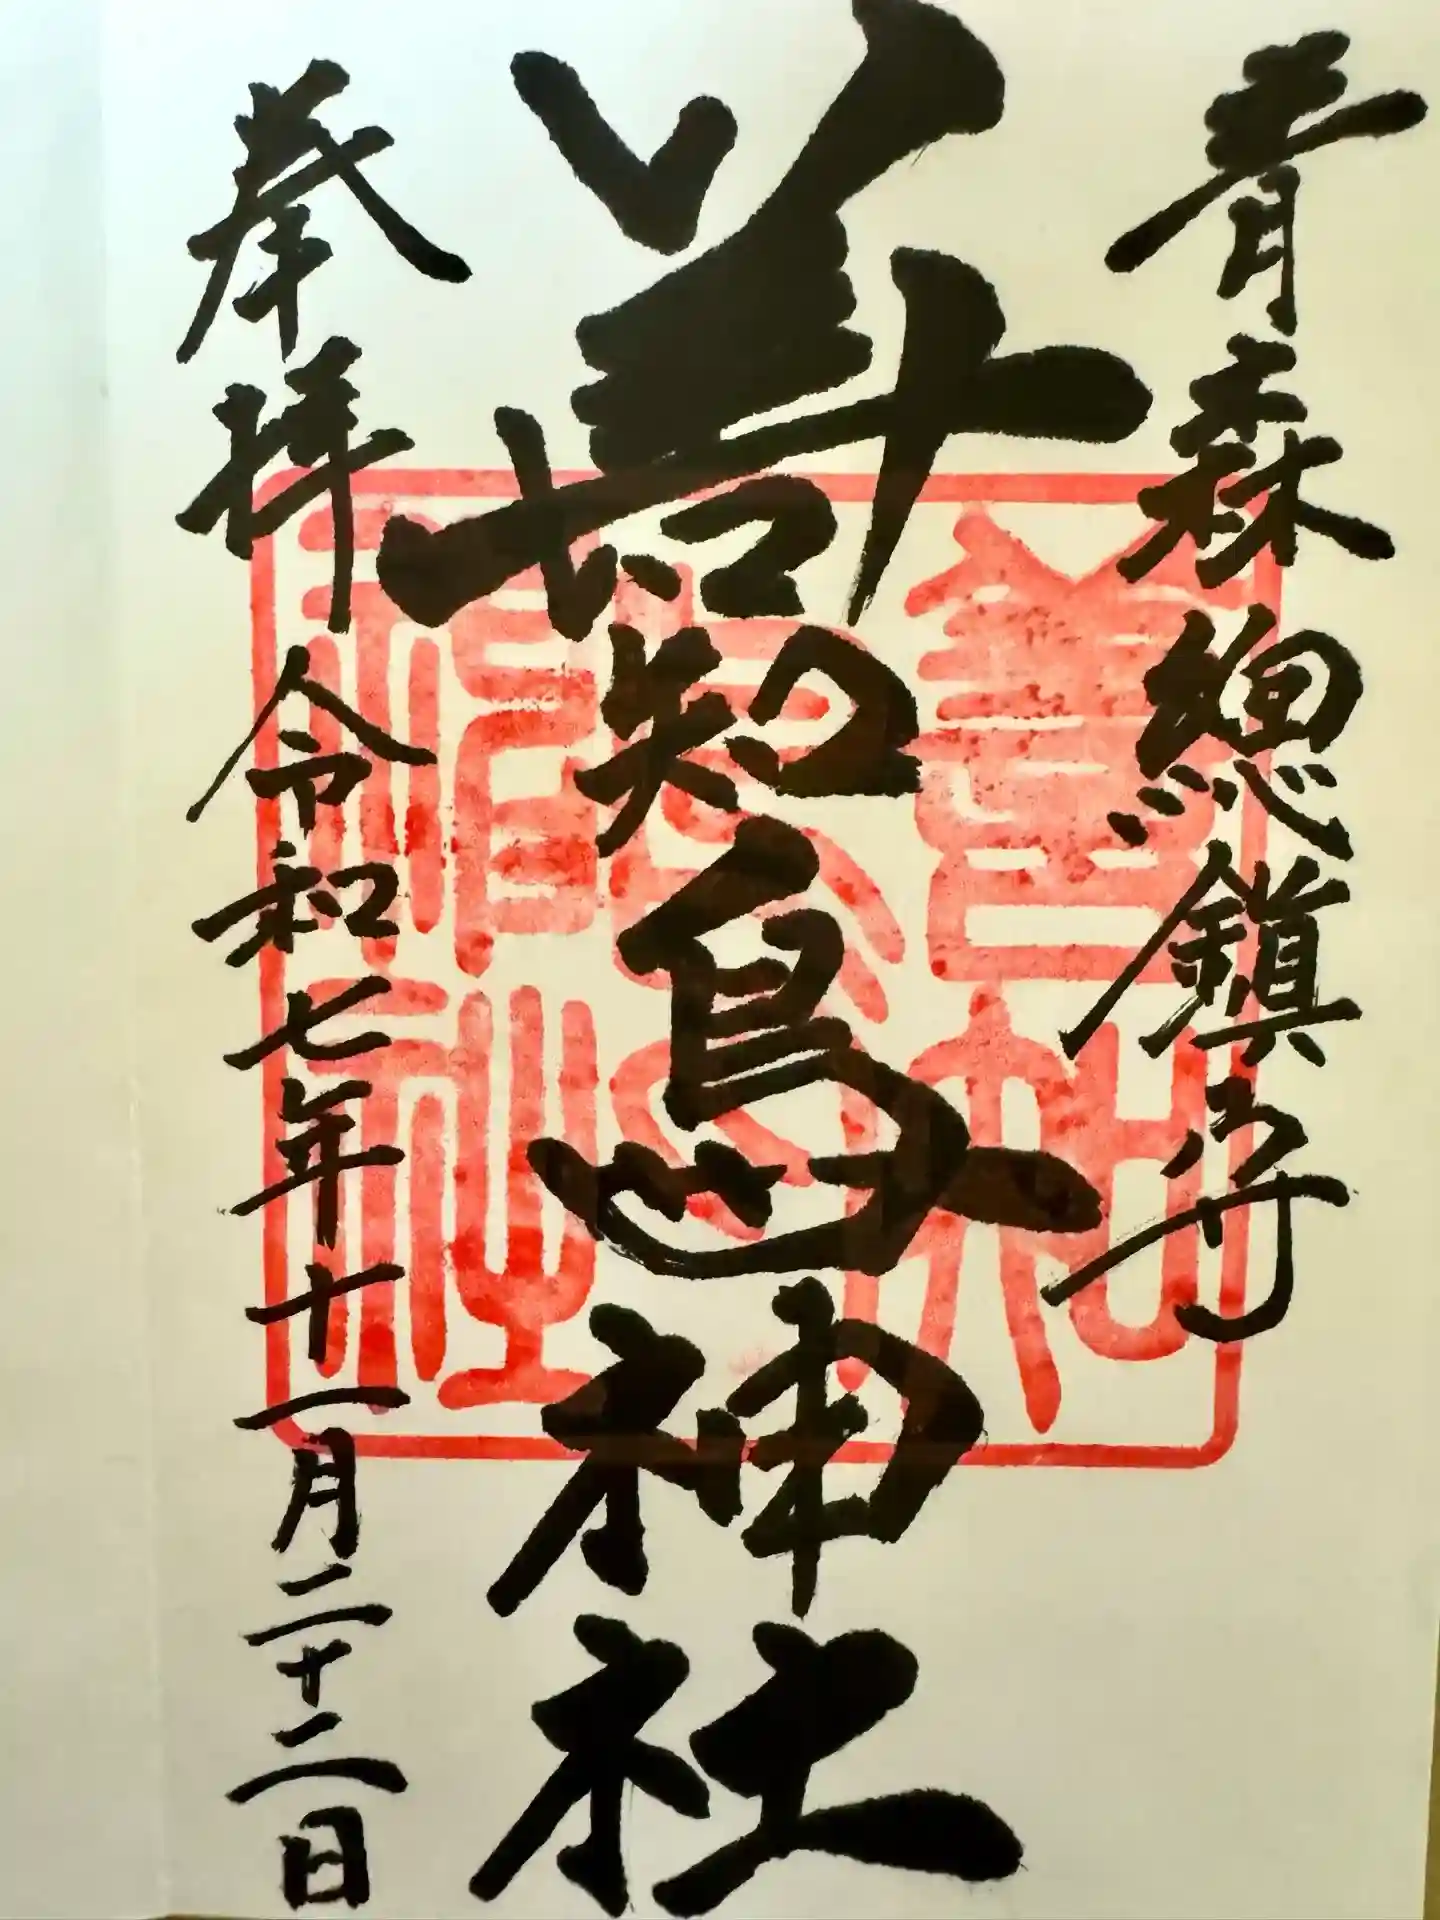 青森總鎮守
善知鳥神社
奉拝 令和七年十一月二十二日
善知
鳥神社